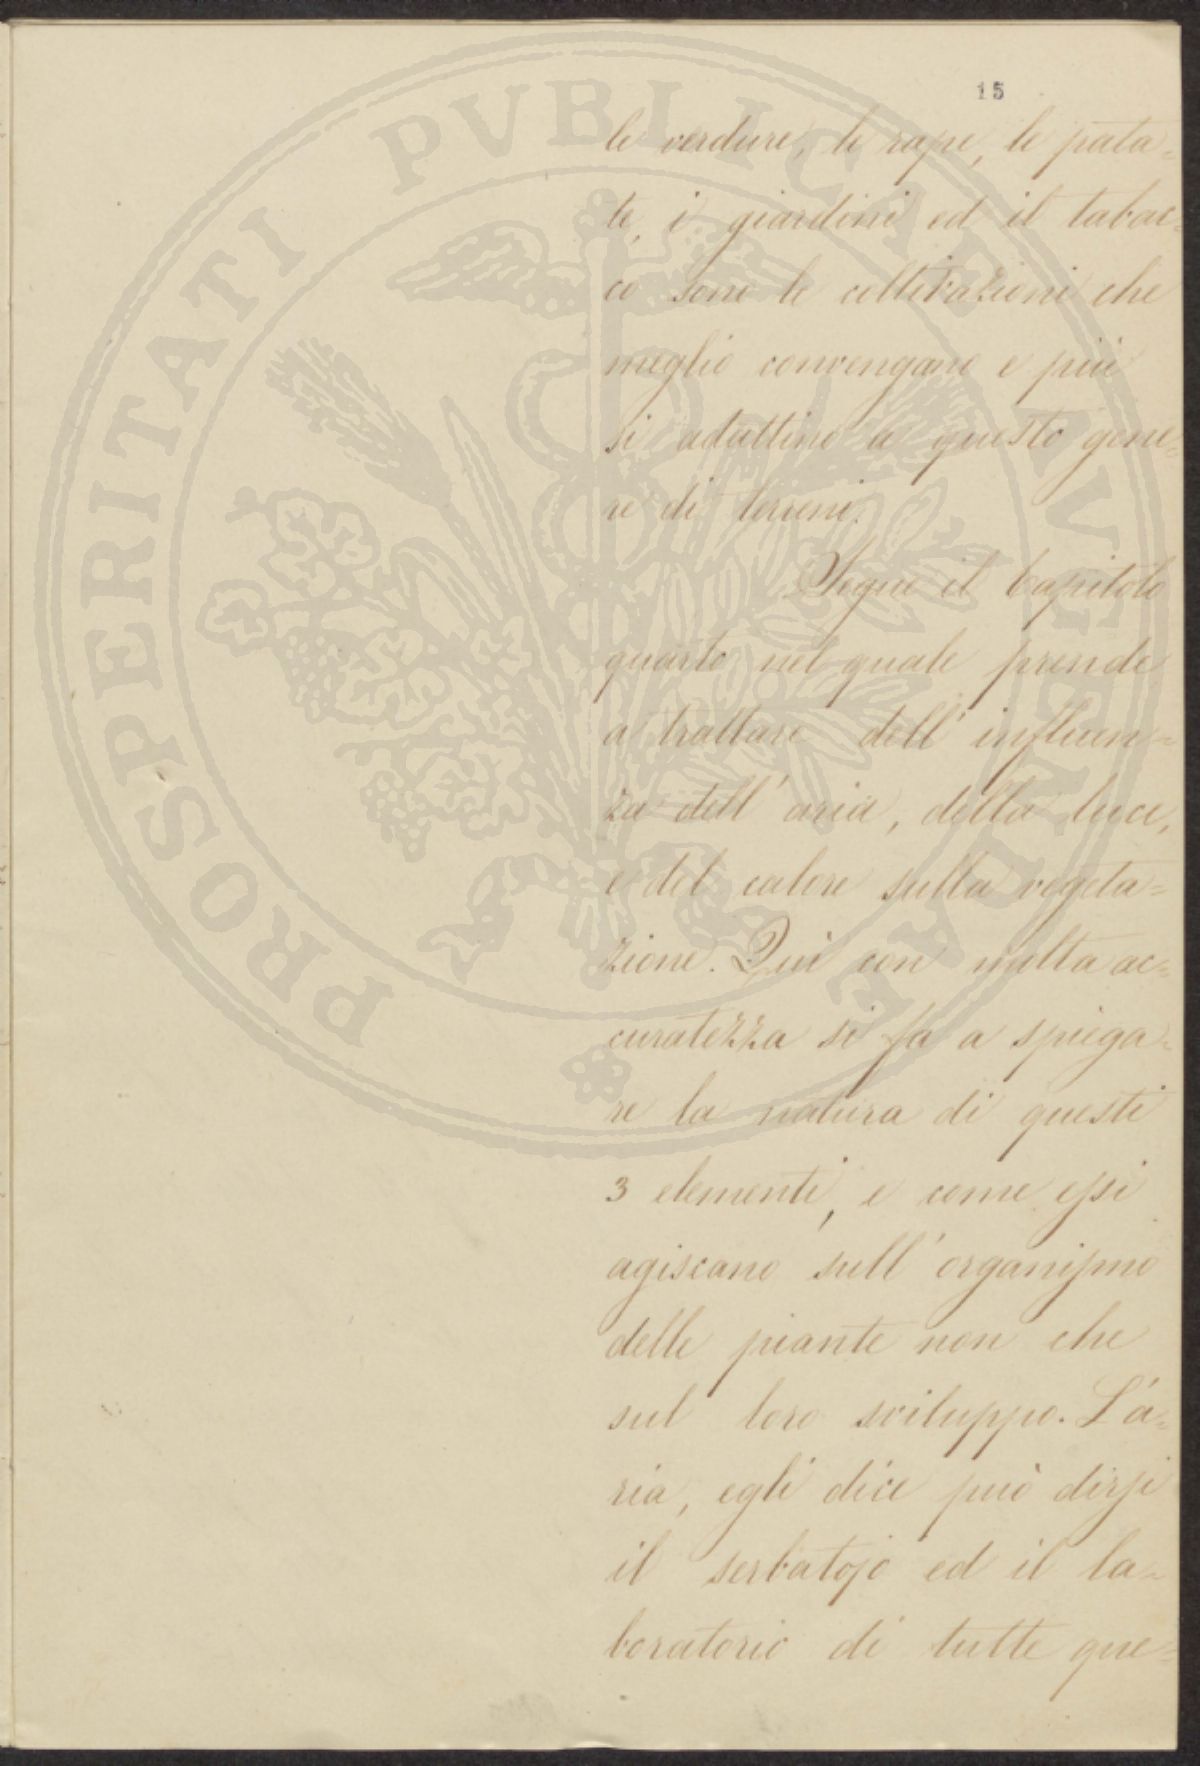 15
le verdure, le rape, le pata-
te, i giardini ed il tabac-
co sono le coltivazioni che
meglio convengano e più
si adattino a questo gene-
re di terreni.
Segue il Capitolo
quarto nel quale prende
a trattare dell'influen-
za dell'aria, della luce,
e del calore sulla vegeta-
zione. Qui con molta ac-
curatezza si fa a spiega-
re la natura di questi
3 elementi, e come essi
agiscano sull'organismo
delle piante non che
sul loro sviluppo. L'a-
ria, egli dice può dirsi
il serbatojo ed il la-
boratorio di tutte que-
PROSPERITATI PVBLICAE AVGENDAE